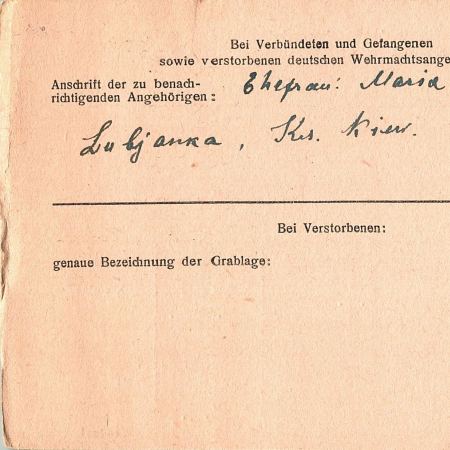 Bei Verbündeten und Gefangenen
sowie verstorbenen deutschen Wehrmachtsange
Anschrift der zu benach-
richtigenden Angehörigen: Ehefrau: Maria
Lubjanka, Krs. Kiew.
Bei Verstorbenen:
genaue Bezeichnung der Grablage: